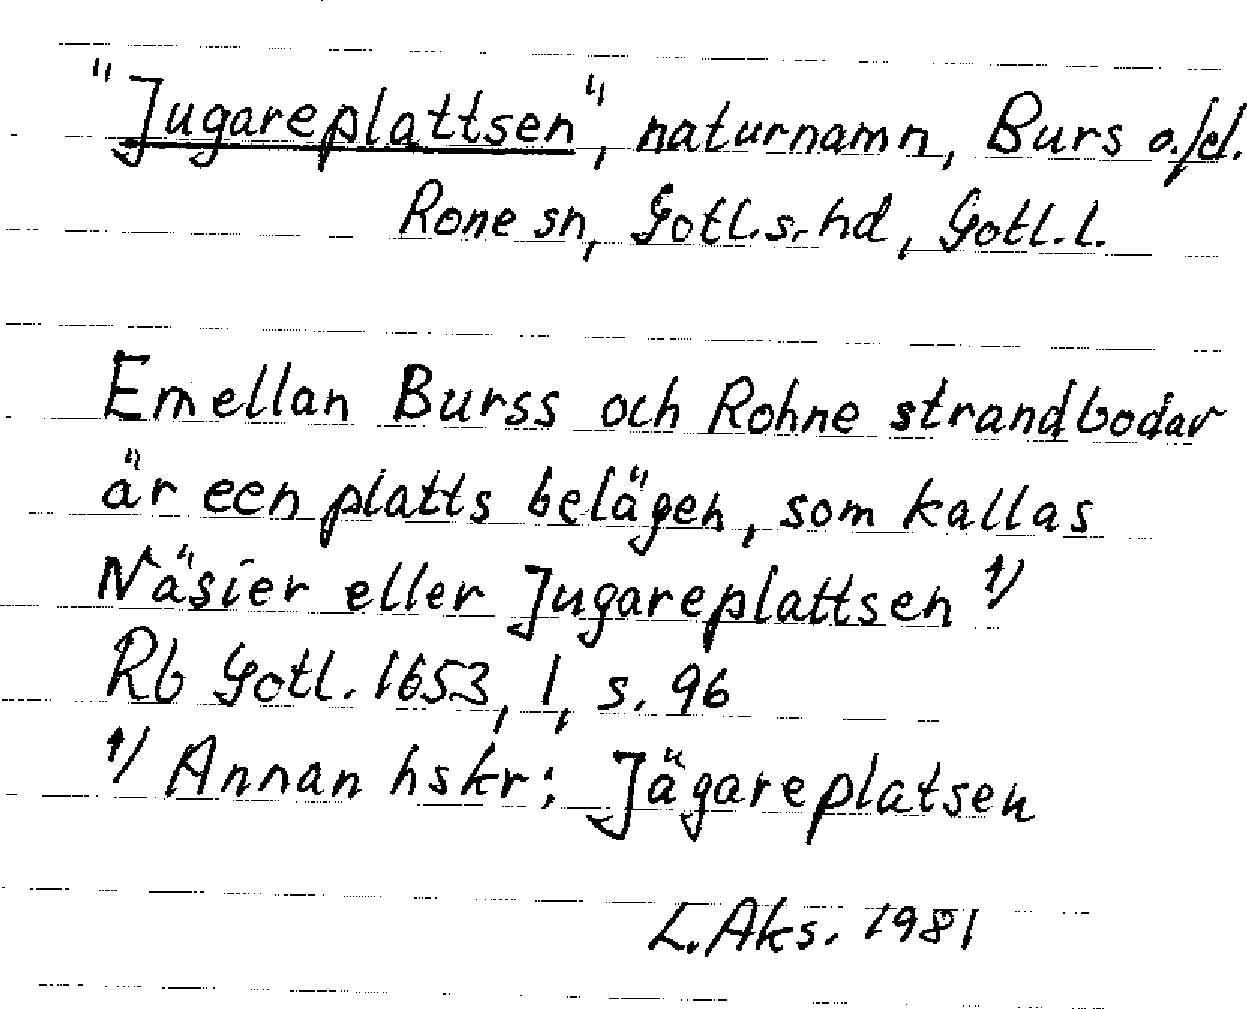 "Jugareplattsen", naturnamn, Burs o./el.
Rone sn, Gotl.s.hd, Gotl.l.
Emellan Burss och Rohne strandbodar
är een platts belägen, som kallas
Näsier eller Jugareplattsen 1)
Rb Gotl. 1653, 1, s. 96
1) Annan hskr: Jägareplatsen
L.Aks. 1981